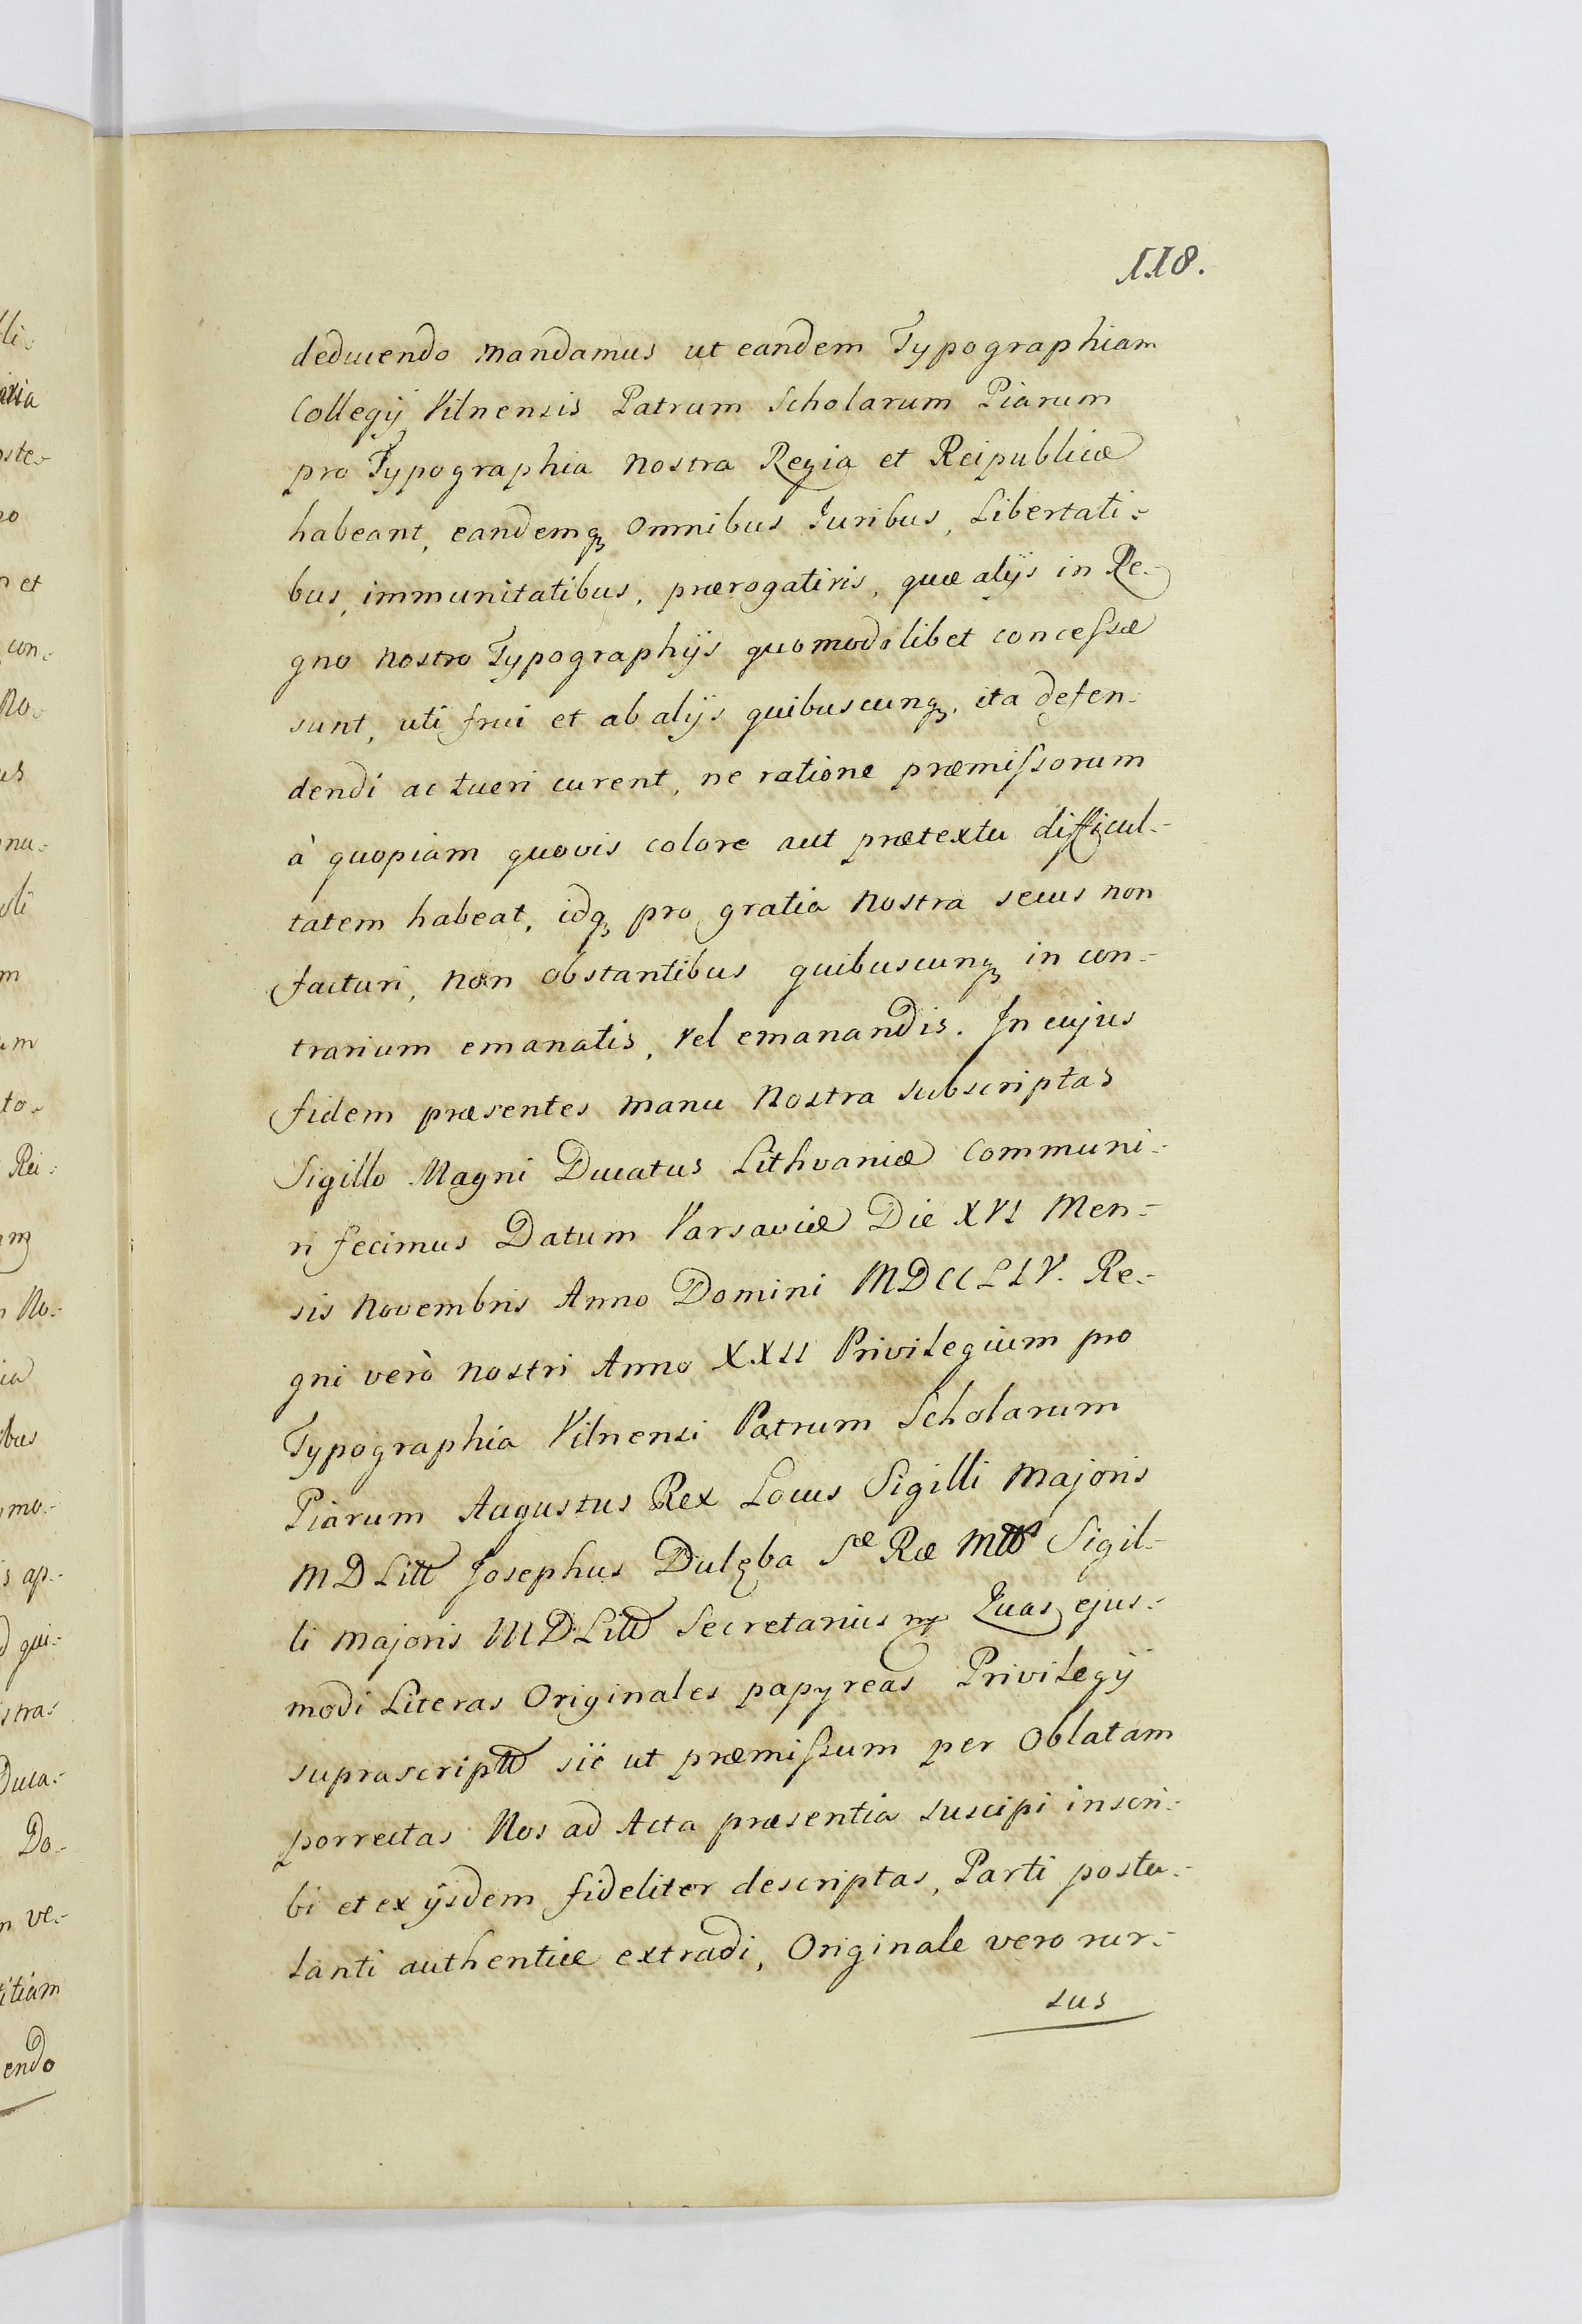 118.
deducendo mandamus ut eandem Typographiam
Collegij Vilnensis Patrum Scholarum Piarum
pro Typographia nostra Regia et Reipublicæ
habeant, eandemq3 omnibus Juribus, Libertati-
bus, immunitatibus, prærogativis, quæ alijs in Re-
gno nostro Typographijs quomodolibet concessæ
sunt, uti frui et ab alijs quibuscunq3, ita defen-
dendi ac tueri curent, ne ratione præmissorum
à quopiam quovis colore aut prætextu difficul-
tatem habeat, idq3 pro gratia nostra secus non
facturi, non obstantibus quibuscunq3 in con-
trarium emanatis, vel emanandis. In cujus
fidem præsentes manu Nostra subscriptas
Sigillo Magni Ducatus Lithvaniæ communi-
ri fecimus Datum Varsaviæ Die XVI Men-
sis Novembris Anno Domini MDCCLIV. Re-
gni verò nostri Anno XXII Privilegium pro
Typographia Vilnensi Patrum Scholarum
Piarum Augustus Rex Locus Sigilli majoris
MDLitt Josephus Dulęba Sæ Ræ Mttis Sigil-
li majoris MDLitt Secretarius mp Quas ejus-
modi Literas Originales papyreas Privilegij
suprascriptt sic ut præmissum per Oblatam
porrectas Nos ad Acta præsentia suscipi inscri-
bi et ex ijsdem fideliter descriptas, Parti postu-
lanti authenticæ extradi, Originale vero rur-
sus
li-
axia
oste-
no
n et
con-
No-
us
nu-
oli
m
um
to-
Rei-
m3
n No-
ia
ibus
mo-
s ap-
d qui-
stras
Duca-
Do-
m ve-
itiam
endo